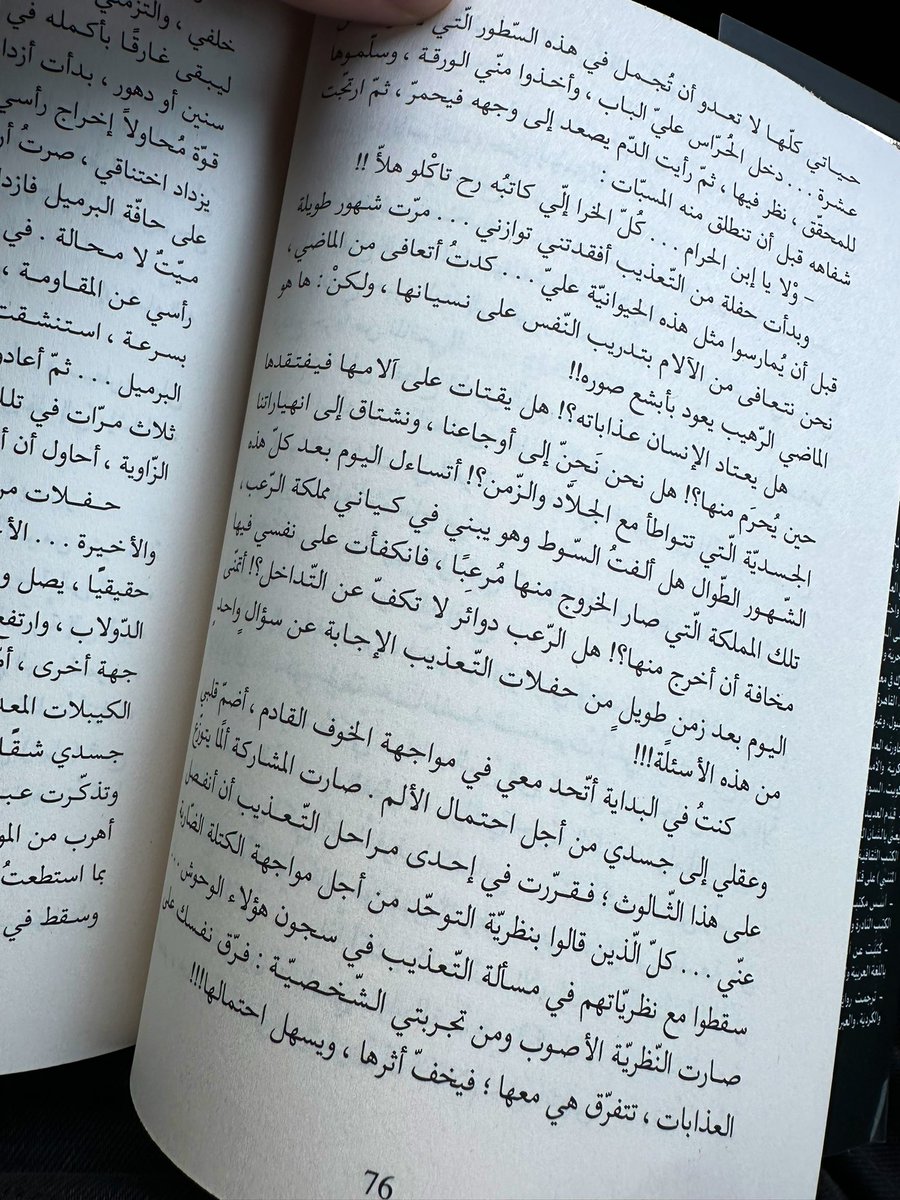 حياتي كلّها لا تعدو أن تُجمل في هذه السّطور الّتي
عشرة ... دخل الحُرّاس عليّ الباب ، وأخذوا منّي الورقة ، وسلّموها
للمحقّق ، نظر فيها ، ثمّ رأيت الدّم يصعد إلى وجهه فيحمرّ ، ثمّ ارتجّت
شفاهه قبل أن تنطلق منه المسبّات :
– وْلا يا إبن الحرام ... كُلّ الخرا إلّي كاتبُه رح تاكْلو هلأّ !!
وبدأت حفلة من التّعذيب أفقدتني توازني ... مرّت شهور طويلة
قبل أن يُمارسوا مثل هذه الحيوانيّة عليّ ... كدتُ أتعافى من الماضي ،
نحن نتعافى من الآلام بتدريب النّفس على نسيانها ، ولكنْ : ها هو
الماضي الرّهيب يعود بأبشع صوره!!
هل يعتاد الإنسان عذاباته؟! هل يقتات على آلامها فيفتقدها
حين يُحرَم منها؟! هل نحن نَحِنّ إلى أوجاعنا ، ونشتاق إلى انهياراتنا
الجسديّة الّتي تتواطأ مع الجلاّد والزّمن؟! أتساءل اليوم بعد كلّ هذه
الشّهور الطّوال هل ألفتُ السّوط وهو يبني في كياني مملكة الرّعب،
تلك المملكة الّتي صار الخروج منها مُرعِبًا ، فانكفأت على نفسي فيها
مخافة أن أخرج منها؟! هل الرّعب دوائر لا تكفّ عن التّداخل؟! أتمنّى
اليوم بعد زمن طويلٍ من حفلات التّعذيب الإجابة عن سؤال واحدٍ
من هذه الأسئلة!!!
كنتُ في البداية أتّحد معي في مواجهة الخوف القادم ، أضمّ قلبي
وعقلي إلى جسدي من أجل احتمال الألم . صارت المشاركة ألمًا يتوزّع
على هذا الثّالوث ؛ فقرّرت في إحدى مراحل التّعذيب أن أنفصل
عنّي ... كلّ الّذين قالوا بنظريّة التوحّد من أجل مواجهة الكتلة الضّاربة
سقطوا مع نظريّاتهم في مسألة التّعذيب في سجون هؤلاء الوحوش ...
صارت النّظريّة الأصوب ومن تجربتي الشّخصيّة : فرّق نفسك على
العذابات ، تتفرّق هي معها ؛ فيخفّ أثرها ، ويسهل احتمالها!!!
76
خلفي ، والتزمني
ليبقى غارقًا بأكمله في
سنين أو دهور ، بدأت أزدا
قوّة مُحاولاً إخراج رأسي
يزداد اختناقي ، صرتُ أر
على حافّة البرميل فازدا
ميّتٌ لا محالة . في
رأسي عن المقاومة ،
بسرعة ، استنشقت
البرميل ... ثمّ أعادو
ثلاث مرّات في تلك
الزّاوية ، أحاول أن أ
حفلات مر
والأخيرة ... الأ
حقيقيًّا ، يصل و
الدّولاب ، وارتفع
جهة أخرى ، أمّ
الكيبلات المعد
جسدي شقًّا
وتذكّرت عبـ
أهرب من المو
بما استطعتُ
وسقط في